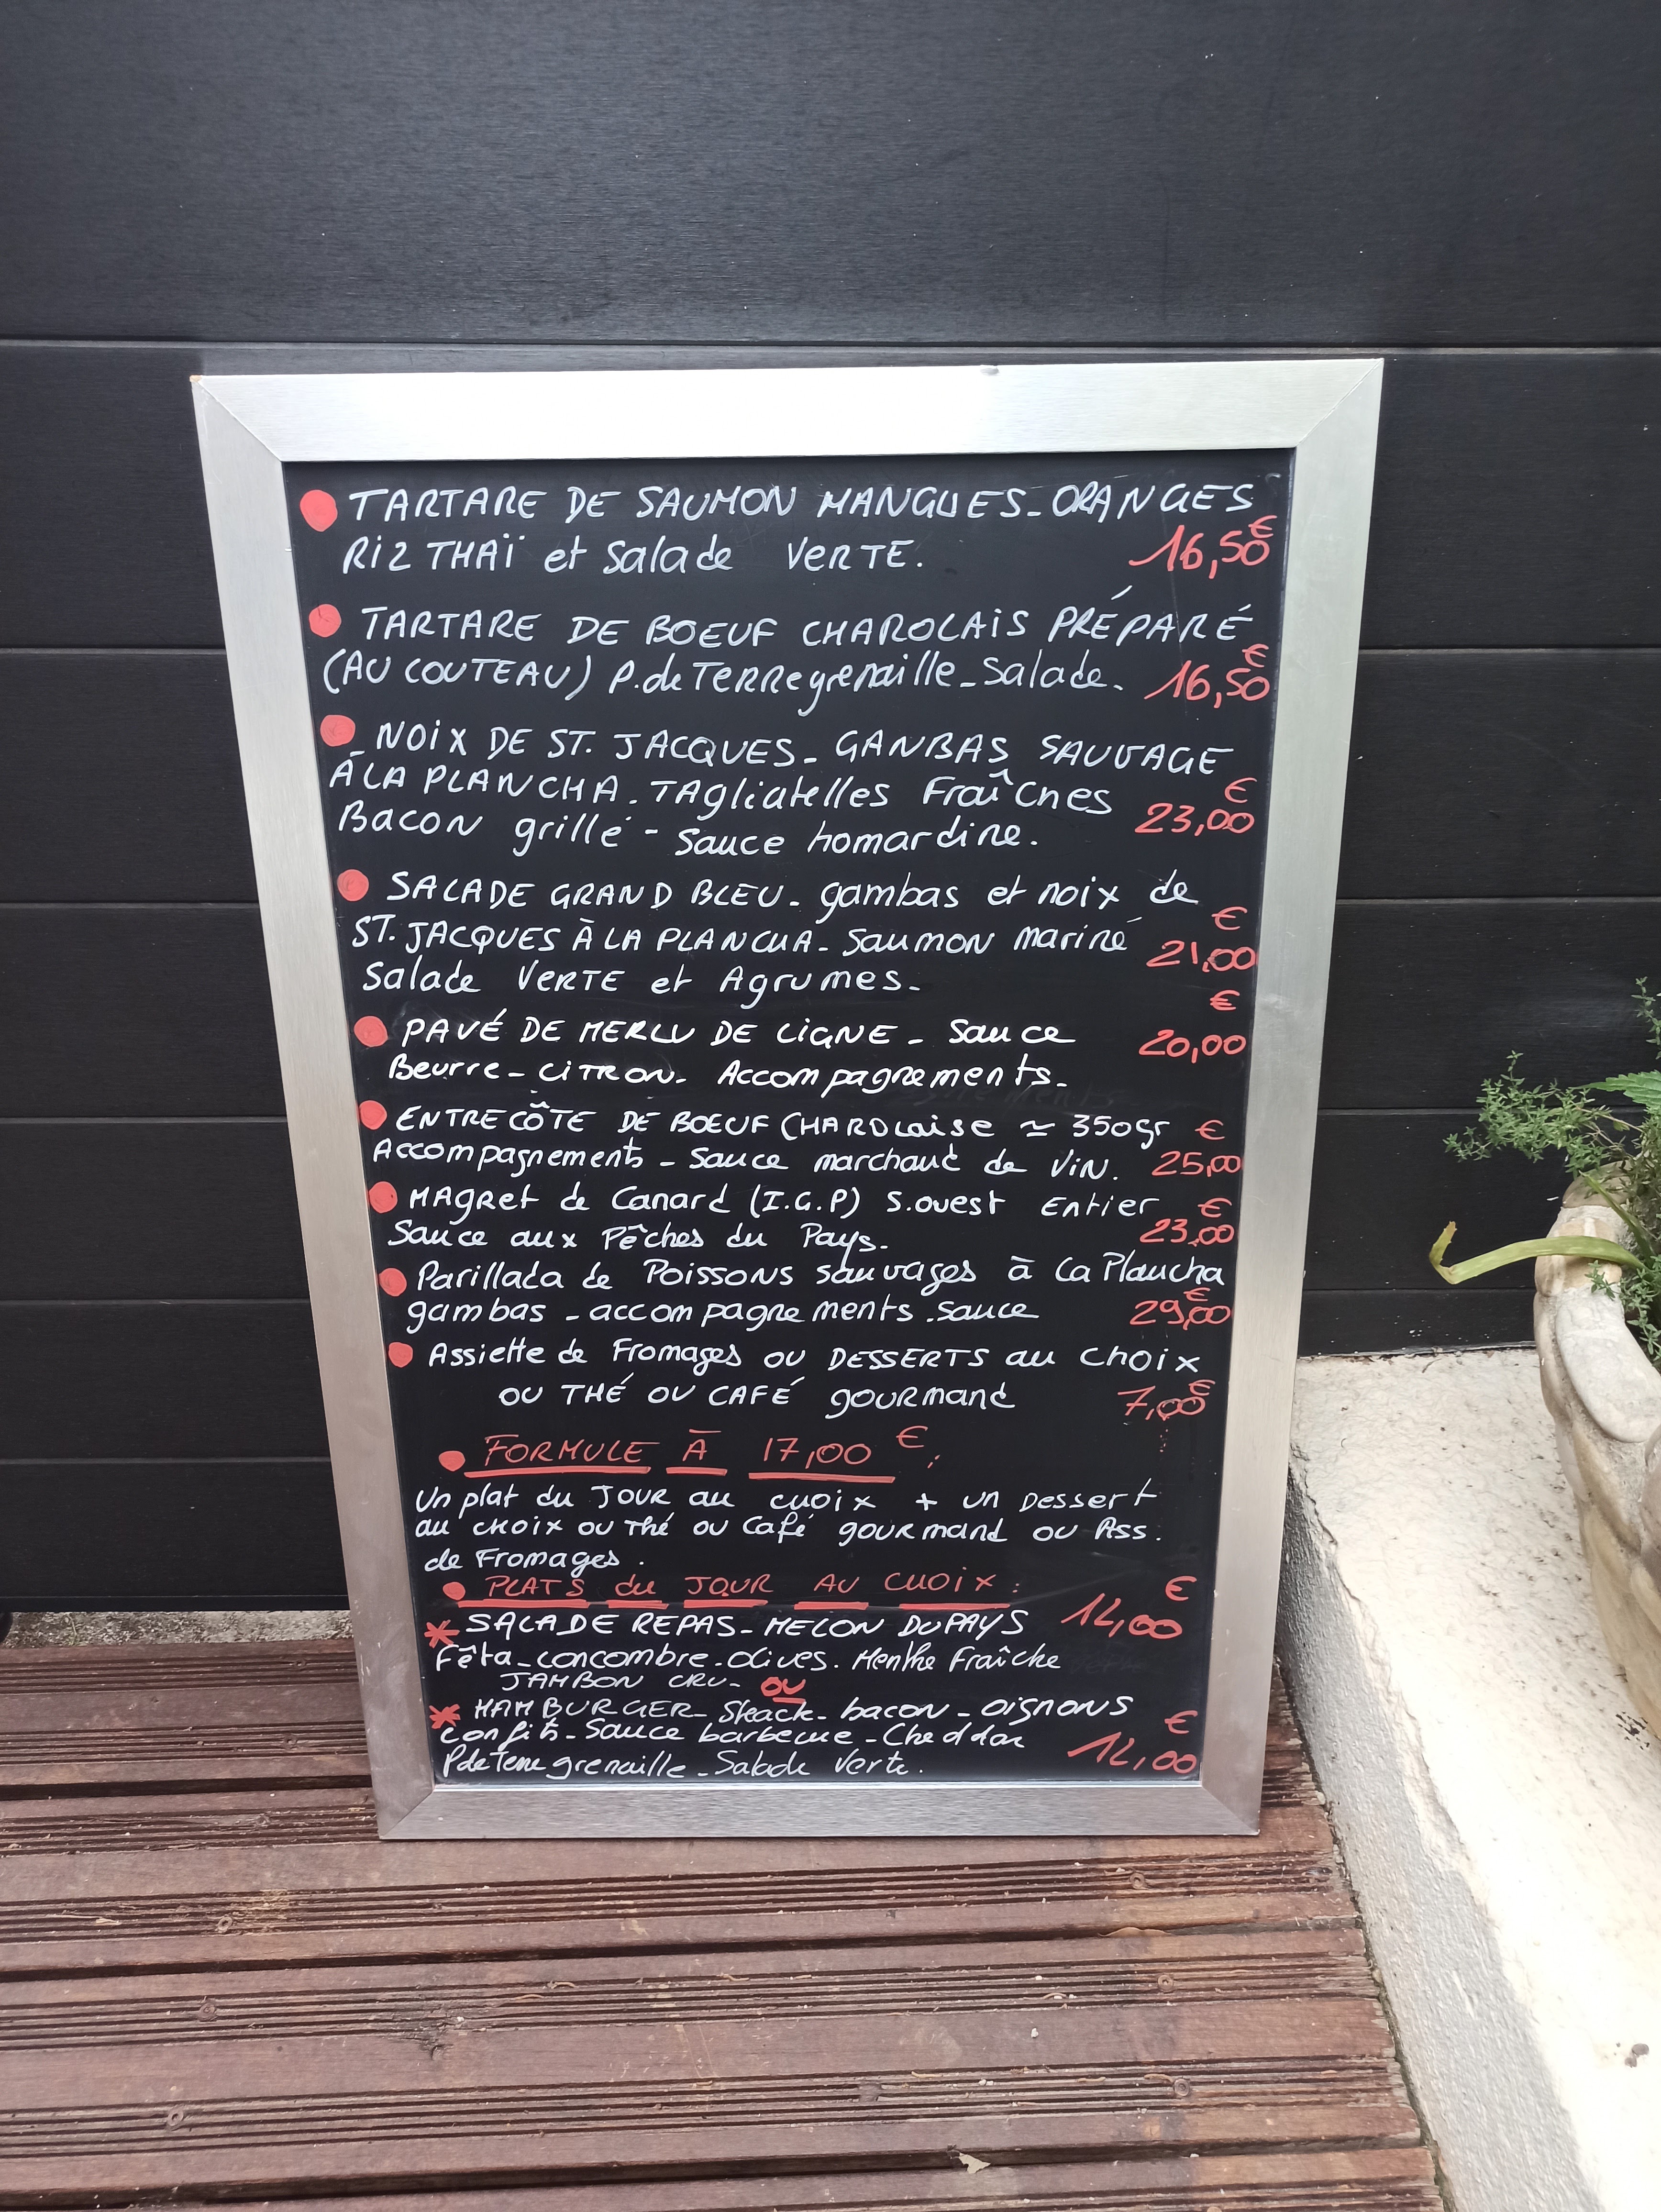 TARTARE DE SAUMON MANGUES - ORANGES
RIZ THAÏ et Salade VERTE. 16,50€
TARTARE DE BOEUF CHAROLAIS PRÉPARÉ
(AU COUTEAU) P. de TERRE grenaille - Salade. 16,50€
NOIX DE ST. JACQUES - GANBAS SAUVAGE
À LA PLANCHA. TAgliatelles Fraîches
Bacon grillé - Sauce homardine. 23,00€
SALADE GRAND BLEU - gambas et noix de
ST. JACQUES À LA PLANCHA - Saumon mariné 21,00€
Salade VERTE et Agrumes.
PAVÉ DE MERLU DE LIGNE - Sauce 20,00€
Beurre - CITRON. Accompagnements.
ENTRECÔTE DE BOEUF CHAROLaise ≃ 350gr
Accompagnements - Sauce marchand de VIN. 25,00€
MAgret de Canard (I.G.P) S.ouest Entier
Sauce aux Pêches du Pays. 23,00€
Parillada de POISSONS sauvages à la Plancha
gambas - accompagnements. sauce 29,00€
Assiette de Fromages OU DESSERTS au choix
OU THÉ OU CAFÉ gourmand 7,00€
FORMULE À 17,00€:
Un plat du JOUR au choix + un Dessert
au choix ou Thé ou Café gourmand ou Ass.
de Fromages.
PLATS du JOUR AU CHOIX:
SALADE REPAS - MELON DU PAYS 14,00€
Fêta - concombre - olives. Menthe Fraîche
JAMBON CRU - OU
HAMBURGER - Steack - bacon - oignons
Confits - Sauce barbecue - Cheddar
P de Terre grenaille - Salade Verte. 14,00€